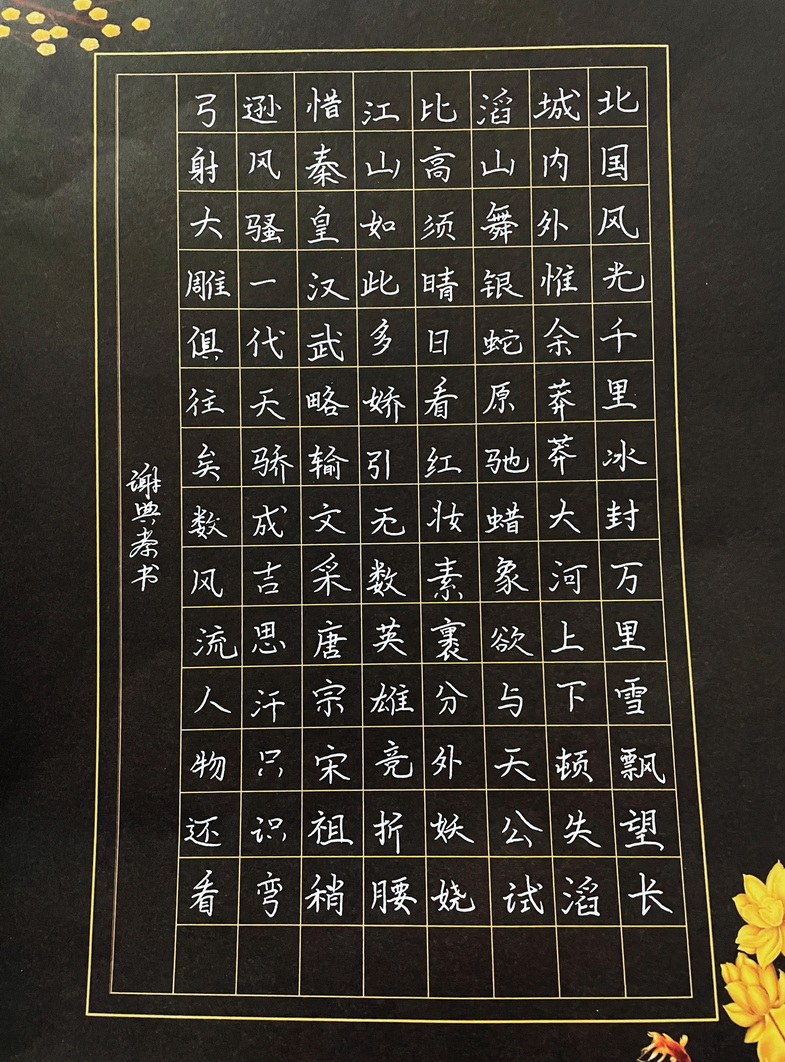 北国风光千里冰封万里雪飘望长
城内外惟余莽莽大河上下顿失滔
滔山舞银蛇原驰蜡象欲与天公试
比高须晴日看红妆素裹分外妖娆
江山如此多娇引无数英雄竞折腰
惜秦皇汉武略输文采唐宗宋祖稍
逊风骚一代天骄成吉思汗只识弯
弓射大雕俱往矣数风流人物还看
谢典书